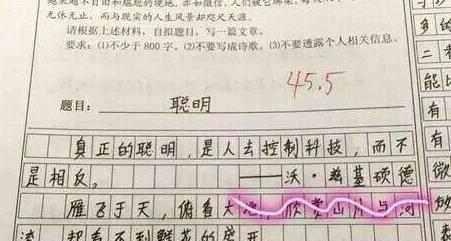 无休无止，而与现实的人生风景却咫尺天涯。
请根据上述材料，自拟题目，写一篇文章。
要求：(1)不少于800字。(2)不要写成诗歌。(3)不要透露个人相关信息。
45.5
题目： 聪明
真正的聪明，是人去控制科技，而不
是相反。 ——沃·兹基硕德
雁飞于天，俯看大 欣赏山川与河
却看不到鲜花的
多的
二
能
有
有